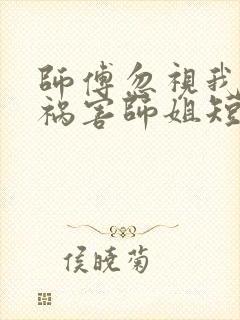 師傅忽視我
祸害師姐短
侯曉菊